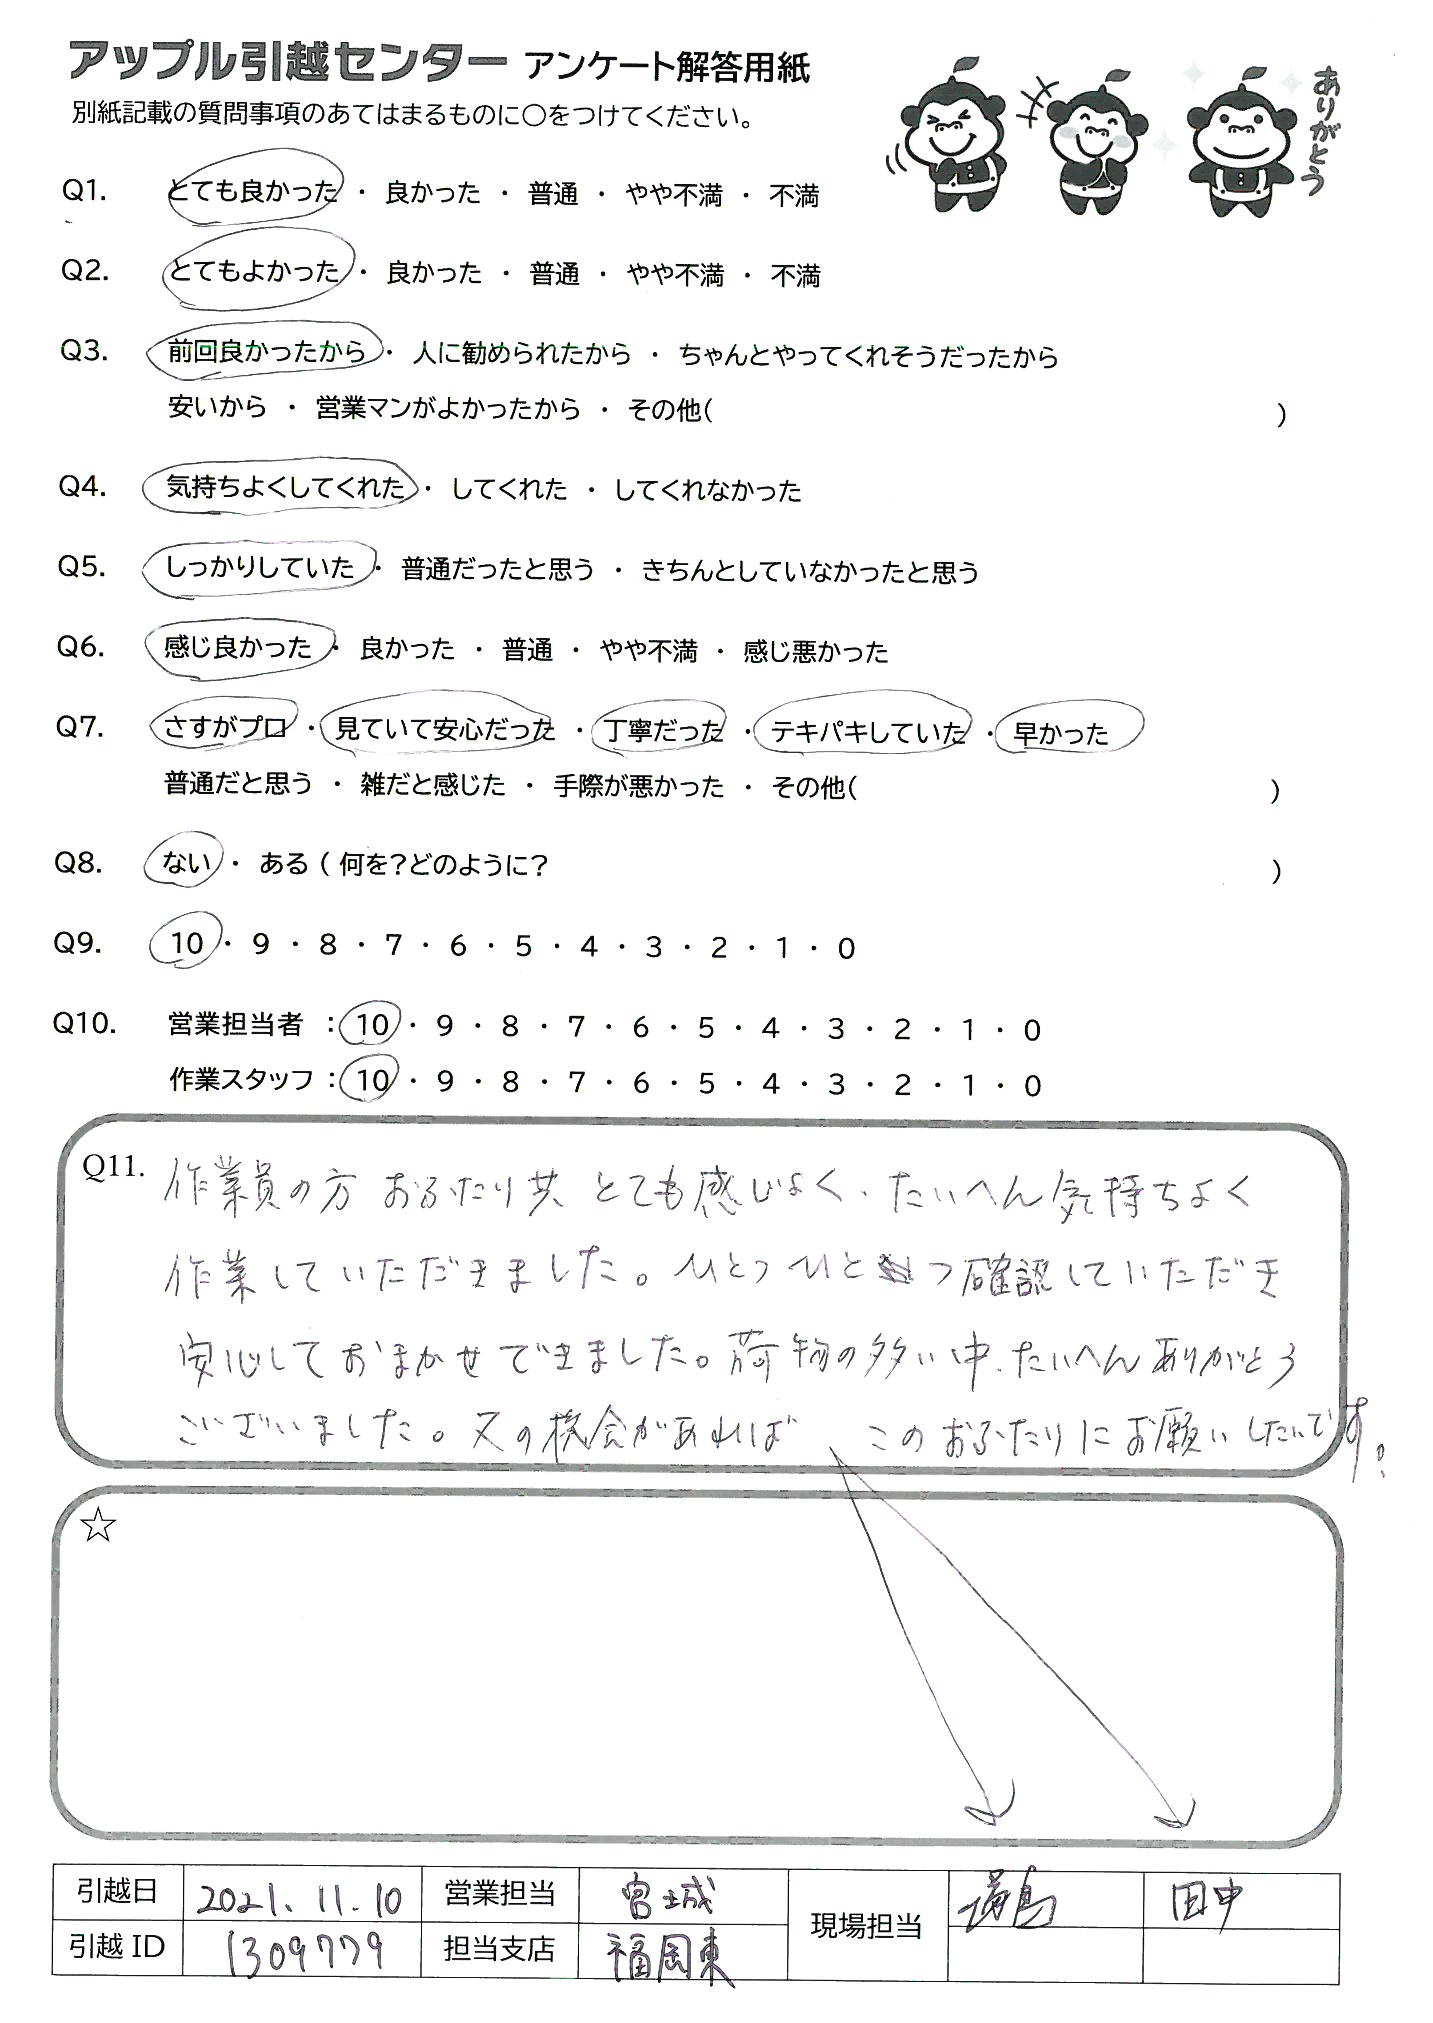 アップル引越センター アンケート解答用紙
別紙記載の質問事項のあてはまるものに○をつけてください。
ありがとう
Q1. とても良かった ・ 良かった ・ 普通 ・ やや不満 ・ 不満
Q2. とてもよかった ・ 良かった ・ 普通 ・ やや不満 ・ 不満
Q3. 前回良かったから ・ 人に勧められたから ・ ちゃんとやってくれそうだったから
安いから ・ 営業マンがよかったから ・ その他( )
Q4. 気持ちよくしてくれた ・ してくれた ・ してくれなかった
Q5. しっかりしていた ・ 普通だったと思う ・ きちんとしていなかったと思う
Q6. 感じ良かった ・ 良かった ・ 普通 ・ やや不満 ・ 感じ悪かった
Q7. さすがプロ ・ 見ていて安心だった ・ 丁寧だった ・ テキパキしていた ・ 早かった
普通だと思う ・ 雑だと感じた ・ 手際が悪かった ・ その他( )
Q8. ない ・ ある ( 何を?どのように? )
Q9. 10 ・ 9 ・ 8 ・ 7 ・ 6 ・ 5 ・ 4 ・ 3 ・ 2 ・ 1 ・ 0
Q10. 営業担当者 : 10 ・ 9 ・ 8 ・ 7 ・ 6 ・ 5 ・ 4 ・ 3 ・ 2 ・ 1 ・ 0
作業スタッフ : 10 ・ 9 ・ 8 ・ 7 ・ 6 ・ 5 ・ 4 ・ 3 ・ 2 ・ 1 ・ 0
Q11. 作業員の方 おふたり共 とても感じよく、たいへん気持ちよく
作業していただきました。ひとつひとつ確認していただき
安心しておまかせできました。荷物の多い中、たいへんありがとう
ございました。又の機会があれば このおふたりにお願いしたいです。
☆
引越日 2021.11.10 営業担当 宮城 現場担当 田中
引越 ID 1309779 担当支店 福岡東